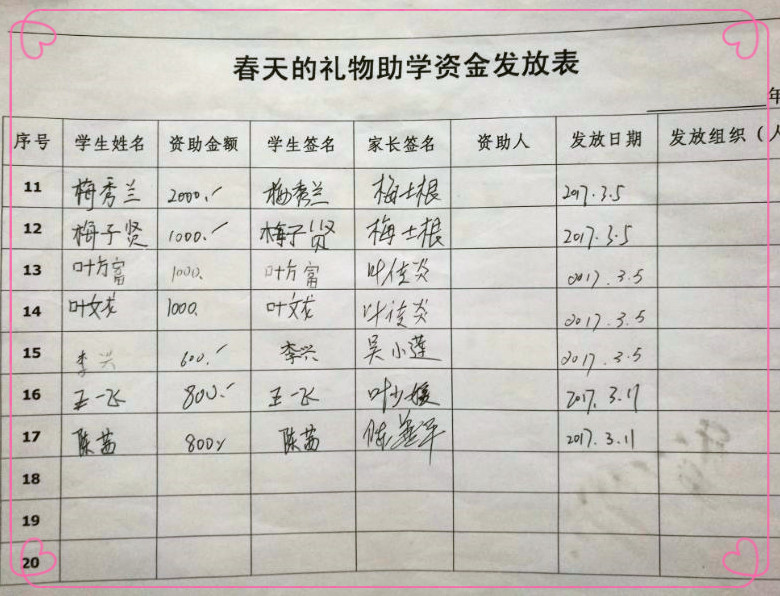 春天的礼物助学资金发放表
年
序号 学生姓名 资助金额 学生签名 家长签名 资助人 发放日期 发放组织（人
11 梅秀兰 2000.- 梅秀兰 梅士根 2017.3.5
12 梅子贤 1000.- 梅子贤 梅士根 2017.3.5
13 叶方富 1000. 叶方富 叶佳炎 2017.3.5
14 叶文龙 1000. 叶文龙 叶佳炎 2017.3.5
15 李兴 600.- 李兴 吴小莲 2017.3.5
16 王一飞 800.- 王一飞 叶少媛 2017.3.11
17 陈茜 800 陈茜 2017.3.11
18
19
20